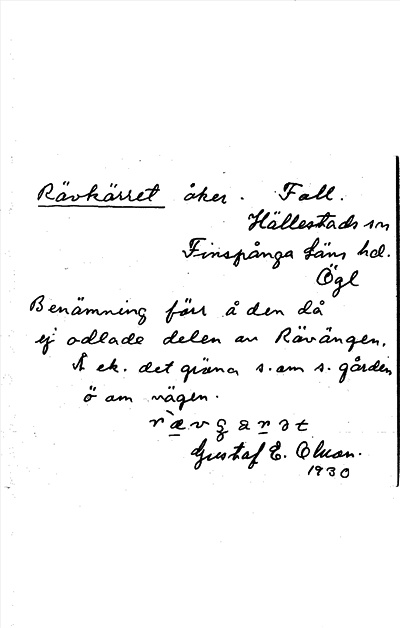 Rävkärret åker. Fall.
Hällestads sn
Finspånga läns hd.
Ögl
Benämning förr å den då
ej odlade delen av Rävängen.
Å ek. det gräna s. om s. gården
ö om vägen.
Gustaf E. Olson.
1930